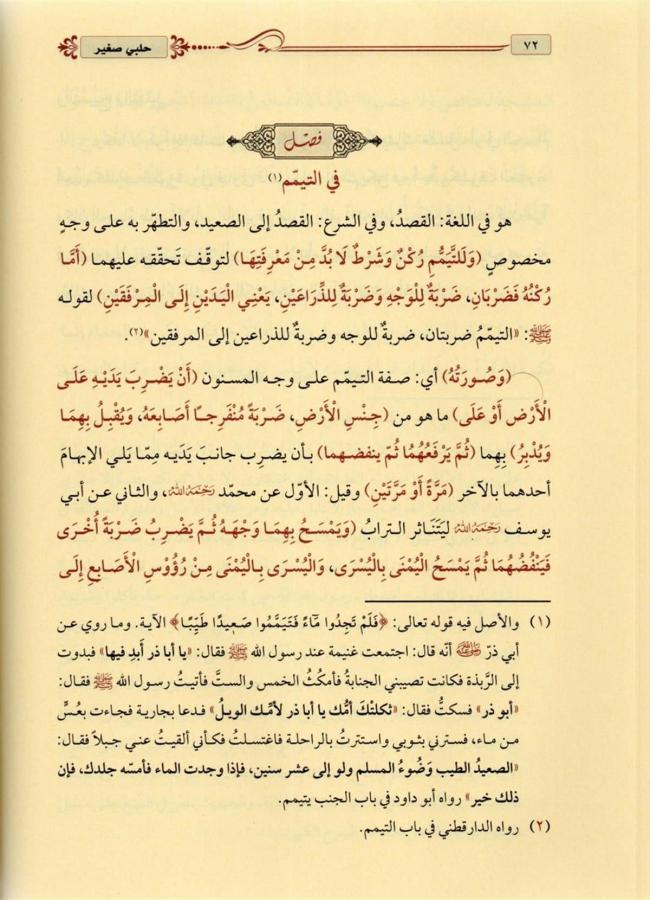 ٧٢
حلبي صغير
فصل
في التيمّم (١)
هو في اللغة: القصدُ، وفي الشرع: القصدُ إلى الصعيد، والتطهّر به على وجهٍ
مخصوصٍ (وَلَلتَّيَمُّمِ رُكْنٌ وَشَرْطٌ لَا بُدَّ مِنْ مَعْرِفَتِهَا) لتوقّف تَحقّقه عليهما (أَمَّا
رُكْنُهُ فَضَرْبَانِ، ضَرْبَةٌ لِلْوَجْهِ وَضَرْبَةٌ لِلذِّرَاعَيْنِ، يَعْنِي الْيَدَيْنِ إِلَى الْمِرْفَقَيْنِ) لقوله
ﷺ: «التيمّمُ ضربتان، ضربةٌ للوجه وضربةٌ للذراعين إلى المرفقين»(٢).
(وَصُورَتُهُ) أي: صفة التيمّم على وجه المسنون (أَنْ يَضْرِبَ يَدَيْهِ عَلَى
الْأَرْضِ أَوْ عَلَى) ما هو من (جِنْسِ الْأَرْضِ، ضَرْبَةً مُنْفَرِجًا أَصَابِعَهُ، وَيُقْبِلُ بِهِمَا
وَيُدْبِرُ) بِهِما (ثُمَّ يَرْفَعُهُمَا ثُمّ ينفضهما) بأن يضرب جانبَ يَدَيه مِمّا يَلي الإبهامَ
أحدهما بالآخر (مَرَّةً أَوْ مَرَّتَيْنِ) وقيل: الأوّل عن محمّد رَحِمَهُ اللهُ، والثاني عن أبي
يوسف رَحِمَهُ اللهُ ليَتَنَاثر الترابُ (وَيَمْسَحُ بِهِمَا وَجْهَهُ ثُمَّ يَضْرِبُ ضَرْبَةً أُخْرَى
فَيَنْفُضُهُمَا ثُمَّ يَمْسَحُ الْيُمْنَى بِالْيُسْرَى، وَالْيُسْرَى بِالْيُمْنَى مِنْ رُؤُوْسِ الْأَصَابِعِ إِلَى
(١) والأصل فيه قوله تعالى: ﴿فَلَمْ تَجِدُوا مَآءً فَتَيَمَّمُوا صَعِيدًا طَيِّبًا﴾ الآية. وما روي عن
أبي ذرّ رضي الله عنه أنّه قال: اجتمعت غنيمة عند رسول الله ﷺ فقال: «يا أبا ذر أبدِ فيها» فبدوت
إلى الرَّبذة فكانت تصيبني الجنابةُ فأمكثُ الخمس والستَّ فأتيتُ رسول الله ﷺ فقال:
«أبو ذر» فسكتُّ فقال: «ثكلتْكَ أمُّك يا أبا ذر لأمّك الويلُ» فدعا بجارية فجاءت بعُسٍّ
من ماء، فسترني بثوبي واستترتُ بالراحلة فاغتسلتُ فكأني ألقيتُ عني جبلًا فقال:
«الصعيدُ الطيب وَضُوءُ المسلم ولو إلى عشر سنين، فإذا وجدت الماء فأمسّه جلدك، فإن
ذلك خير» رواه أبو داود في باب الجنب يتيمم.
(٢) رواه الدارقطني في باب التيمم.